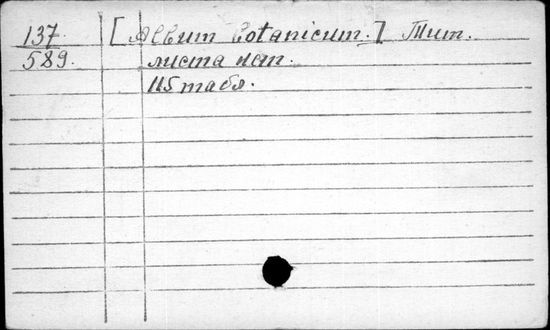 137
589.
[Album botanicum.] Тит.
листа нет.
115 табл.